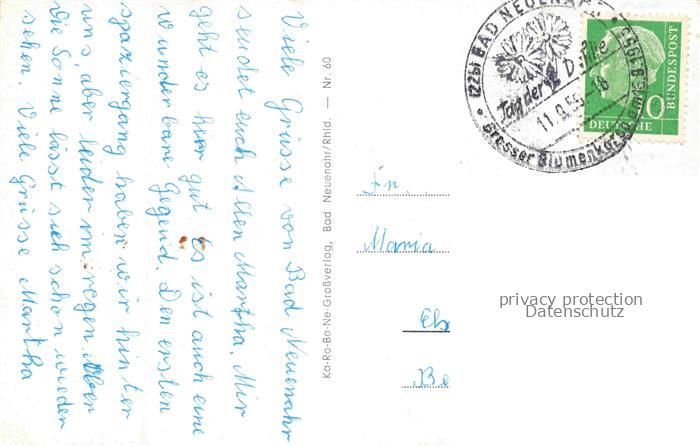 Viele Grüsse von Bad Neuenahr
sendet euch Allen Martha. Mir
geht es hier gut. Es ist auch eine
wunderbare Gegend. Den ersten
spaziergang haben wir hinter
uns, aber leider im regen. Aber
Die Sonne lässt sich schon wieder
sehen. Viele Grüsse Martha
Ka-Ro-Ba-Ne-Großverlag, Bad Neuenahr/Rhld. — Nr. 60
(22b) BAD NEUENAHR
Tag der Dahlie
11.9.55-18
Grosser Blumenkorso
DEUTSCHE BUNDESPOST
Frl.
Maria
privacy protection
Datenschutz
Be